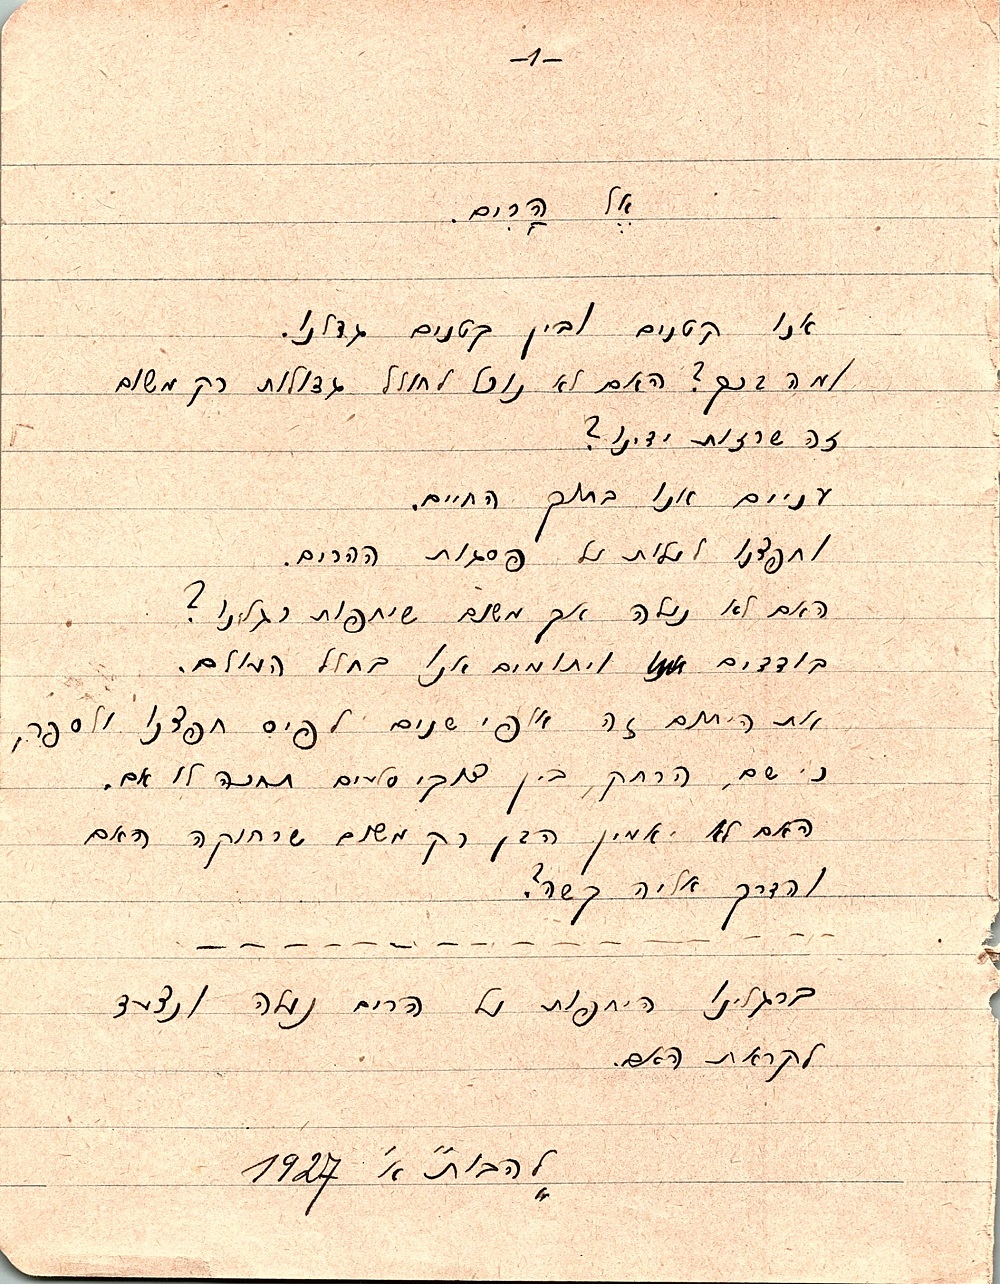 -1-
אֶל הָרִים.
אנו קטנים ובין קטנים גדלנו.
ומה בכך? האם לא נוכל לחולל גדולות רק משום
זה שרזות ידינו?
עניים אנו בחוק החיים.
וחפצנו לעלות על פסגות ההרים.
האם לא נעלה אך משום שיחפות רגלינו?
בודדים ויתומים אנו בחלל העולם.
את היתום זה אלפי שנים לפיס חפצנו ולספר,
כי שם, הרחק, בין צוקי סלעים תחכה לו אם.
האם לא יאמין הבן רק משום שרחוקה האם
והדרך אליה קשה?
ברגלינו היחפות על הרים נעלה ונצעד
לקראת האם.
"להבות" א' 1927